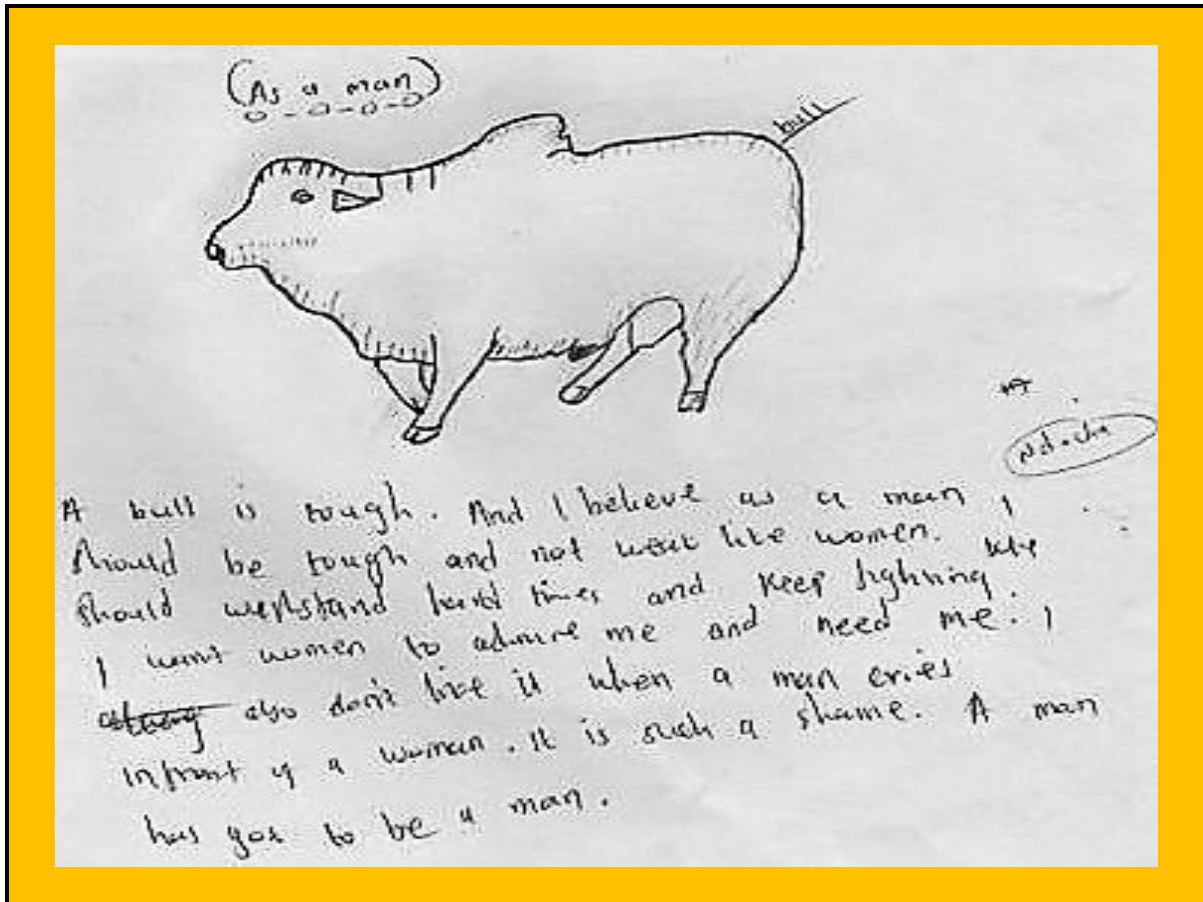 (As a man)
bull
A bull is tough. And I believe as a man I
should be tough and not weak like women. We
should withstand hard times and keep fighting.
I want women to admire me and need me. I
also don't like it when a man cries
infront of a woman. It is such a shame. A man
has got to be a man.